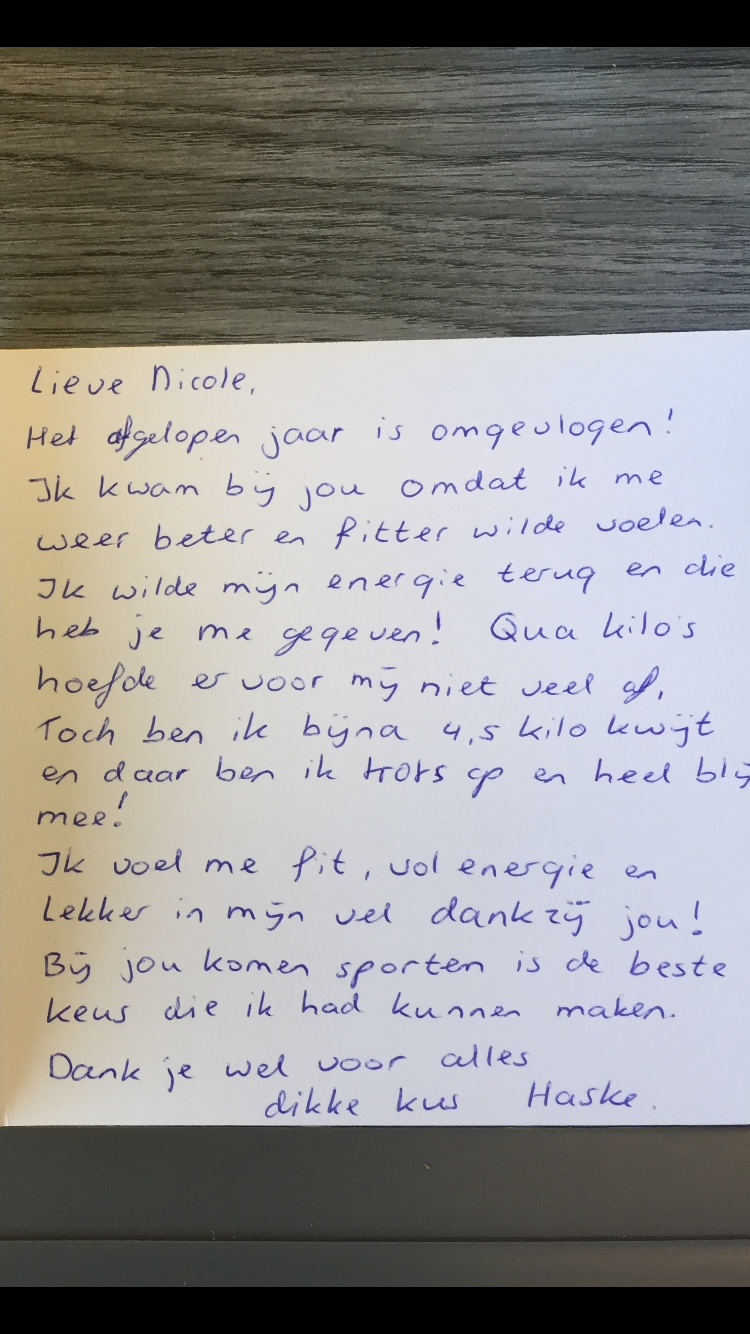 Lieve Nicole,
Het afgelopen jaar is omgevlogen!
Ik kwam bij jou omdat ik me
weer beter en fitter wilde voelen.
Ik wilde mijn energie terug en die
heb je me gegeven! Qua kilo's
hoefde er voor mij niet veel af,
Toch ben ik bijna 4,5 kilo kwijt
en daar ben ik trots op en heel blij
mee!
Ik voel me fit, vol energie en
Lekker in mijn vel dankzij jou!
Bij jou komen sporten is de beste
keus die ik had kunnen maken.
Dank je wel voor alles
dikke kus Haske.